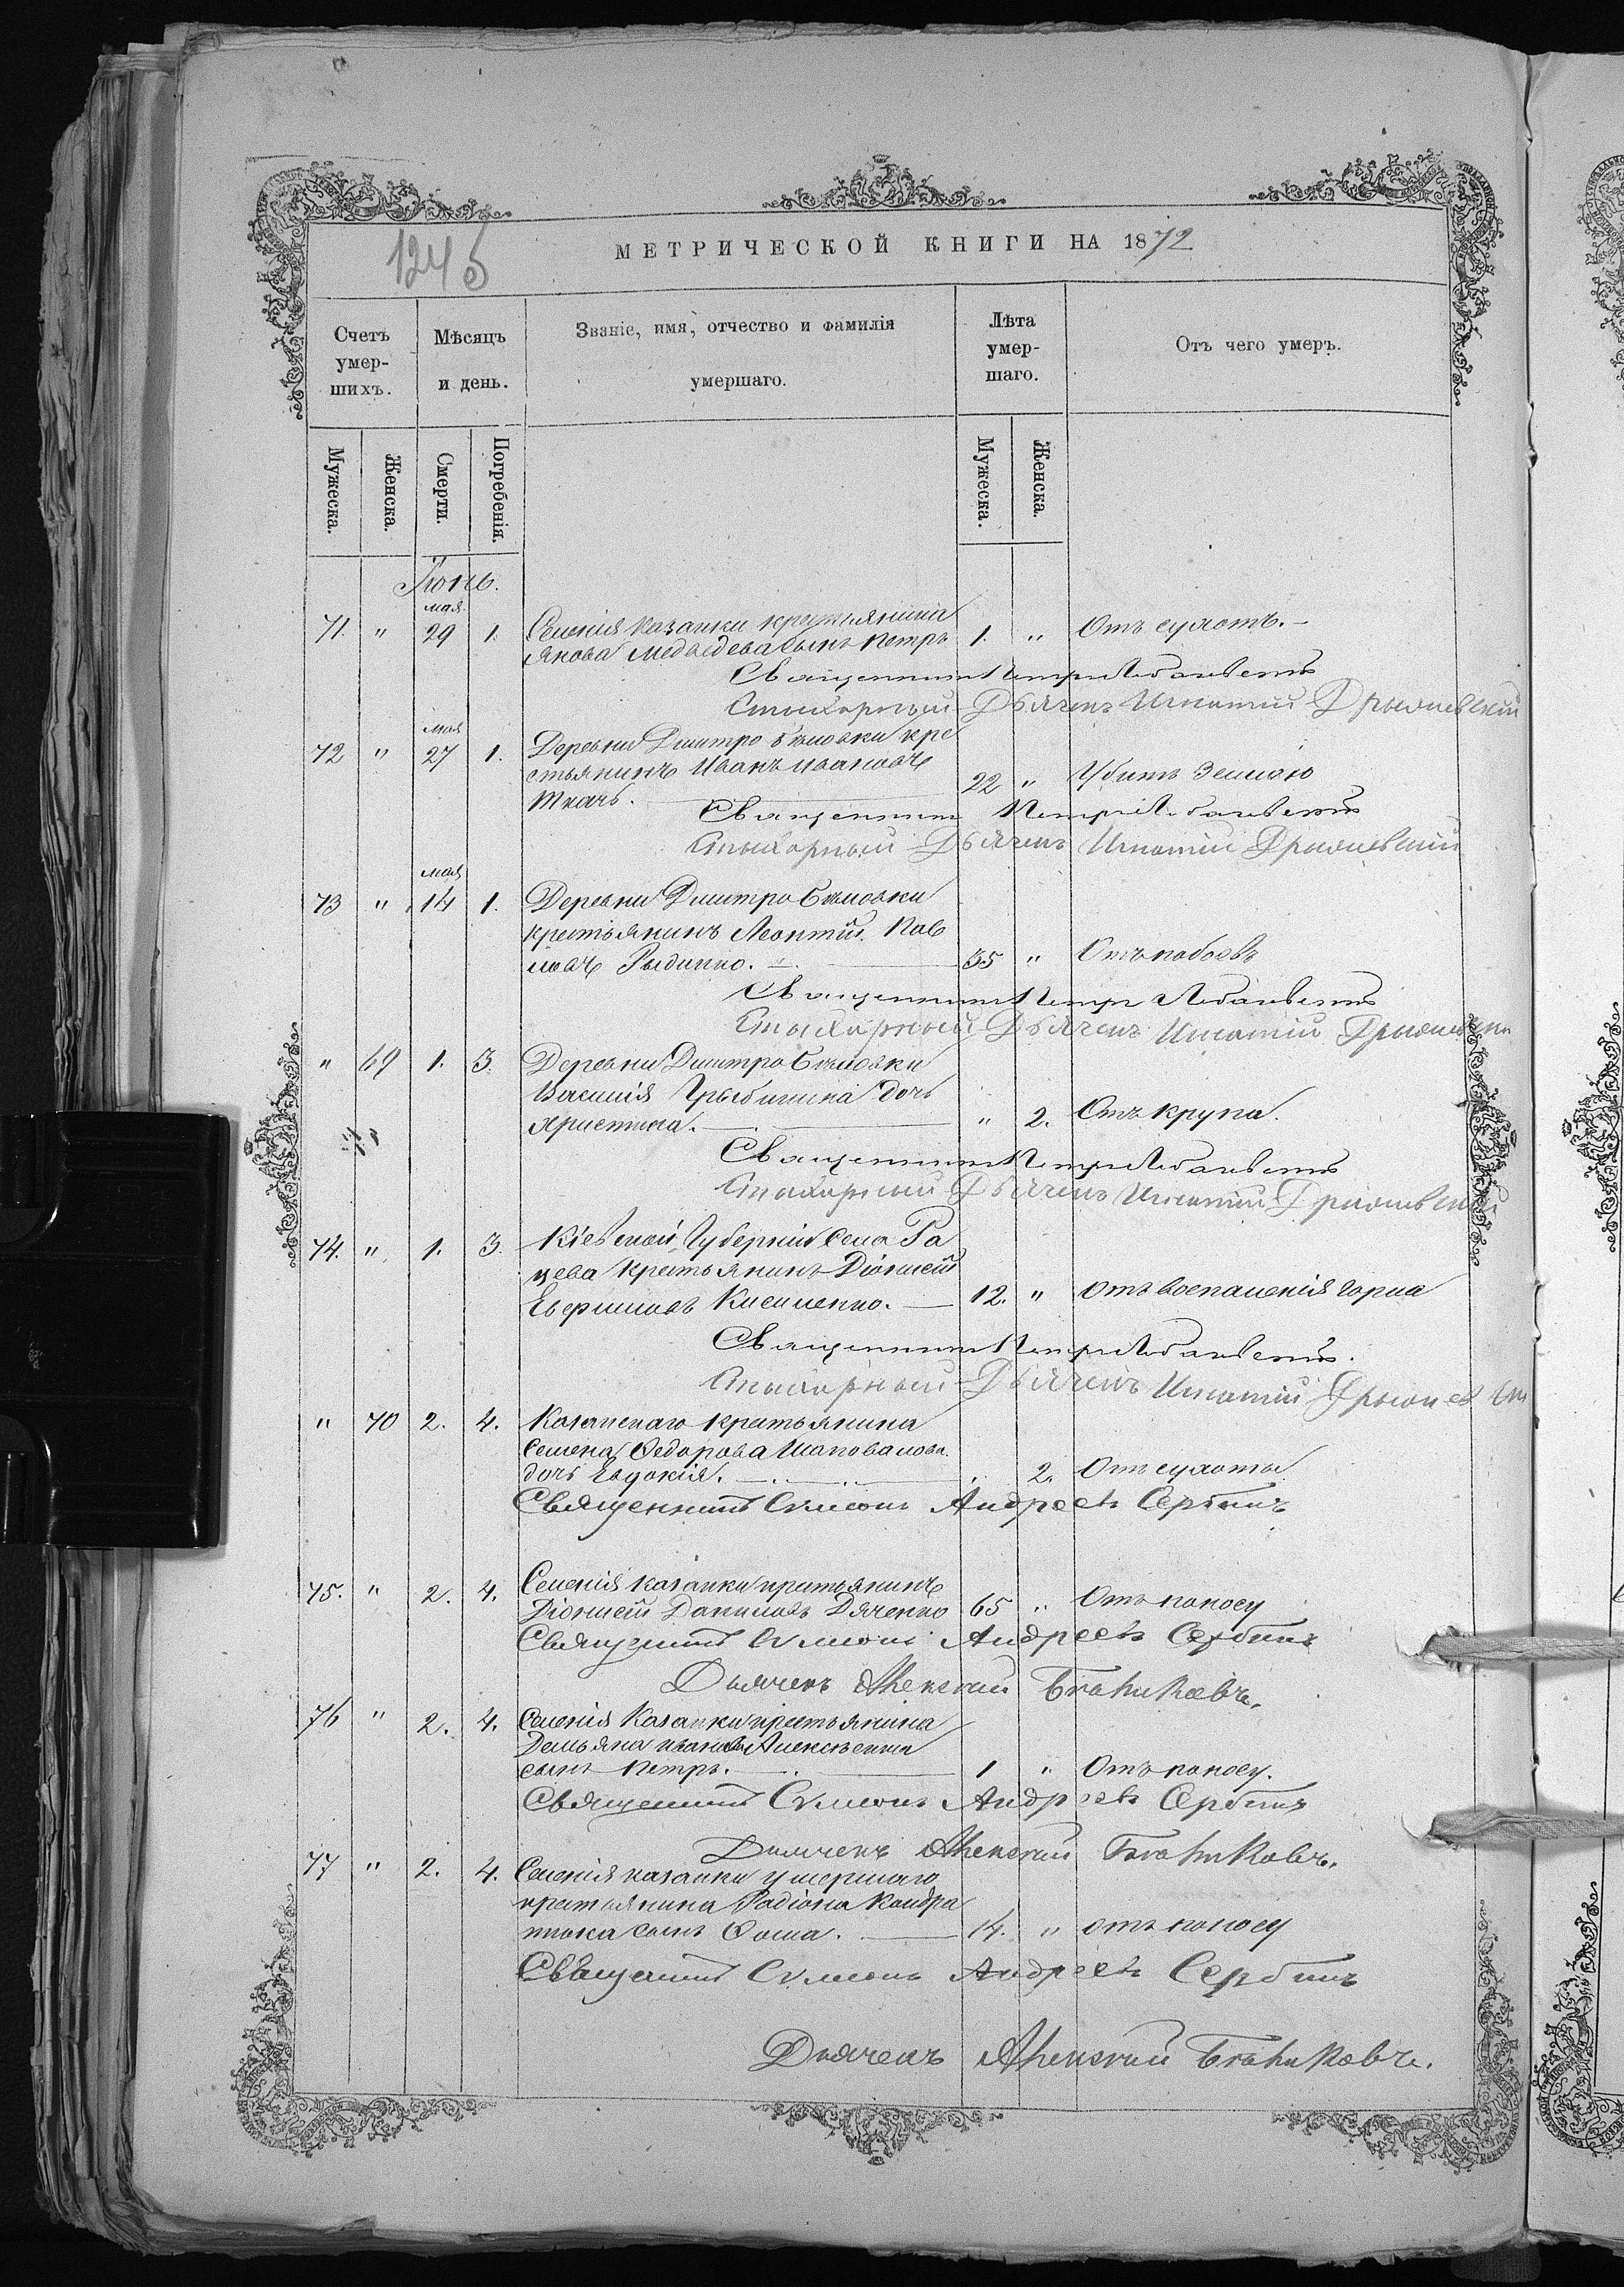 124 б
МЕТРИЧЕСКОЙ КНИГИ НА 1872
Счетъ умер-шихъ.
Мѣсяцъ и день.
Званіе, имя, отчество и фамилія умершаго.
Лѣта умер-шаго.
Отъ чего умеръ.
Мужеска.
Женска.
Смерти.
Погребенія.
Мужеска.
Женска.
Іюнь.
мая
71. " 29 1. Селенія Казанки крестьянина
Якова Медведева сынъ Петръ 1. " Отъ сухотъ.
Священникъ Петръ
Стихарный Дьячекъ Игнатий
мая
72 " 27 1. Деревни Дмитро Бѣловки кре
стьянинъ Иванъ Ивановъ 22 " Убитъ Землею
Ткачь.
Священникъ Петръ
Стихарный Дьячекъ Игнатий
мая
73 " 14 1. Деревни Дмитро Бѣловки
крестьянинъ Леонтій Пав
ловъ 35 " Отъ побоевъ
Священникъ Петръ
Стихарный Дьячекъ Игнатий
" 69 1. 3. Деревни Дмитро Бѣловки
Василія дочь
Христина. " 2. Отъ крупа.
Священникъ Петръ
Стихарный Дьячекъ Игнатий
74. " 1. 3. Кіевской Губерніи Села Ра
цева Крестьянинъ Діонисій
Кисиленко. 12. " отъ воспаленія горла
Священникъ Петръ
Стихарный Дьячекъ Игнатий
" 70 2. 4. Казанскаго крестьянина
Семена Федорова Шаповалова
дочь Евдокія. " 2. Отъ сухоты
Священникъ Симеонъ Андреевъ Сербинъ
75. " 2. 4. Селенія Казанки крестьянинъ
Діонисій Даниловъ Дяченко 65 " Отъ поносу
Священникъ Симеонъ Андреевъ Сербинъ
Дьячекъ Алексий
76 " 2. 4. Селенія Казанки крестьянина
Демьяна Иванова Алексѣенка
сынъ Петръ. 1 " Отъ поносу.
Священникъ Симеонъ Андреевъ Сербинъ
Дьячекъ Алексий
77 " 2. 4. Селенія Казанки умершаго
крестьянина Радіона Кондра
тюка сынъ Фома. 14. " отъ поносу
Священникъ Симеонъ Андреевъ Сербинъ
Дьячекъ Алексий